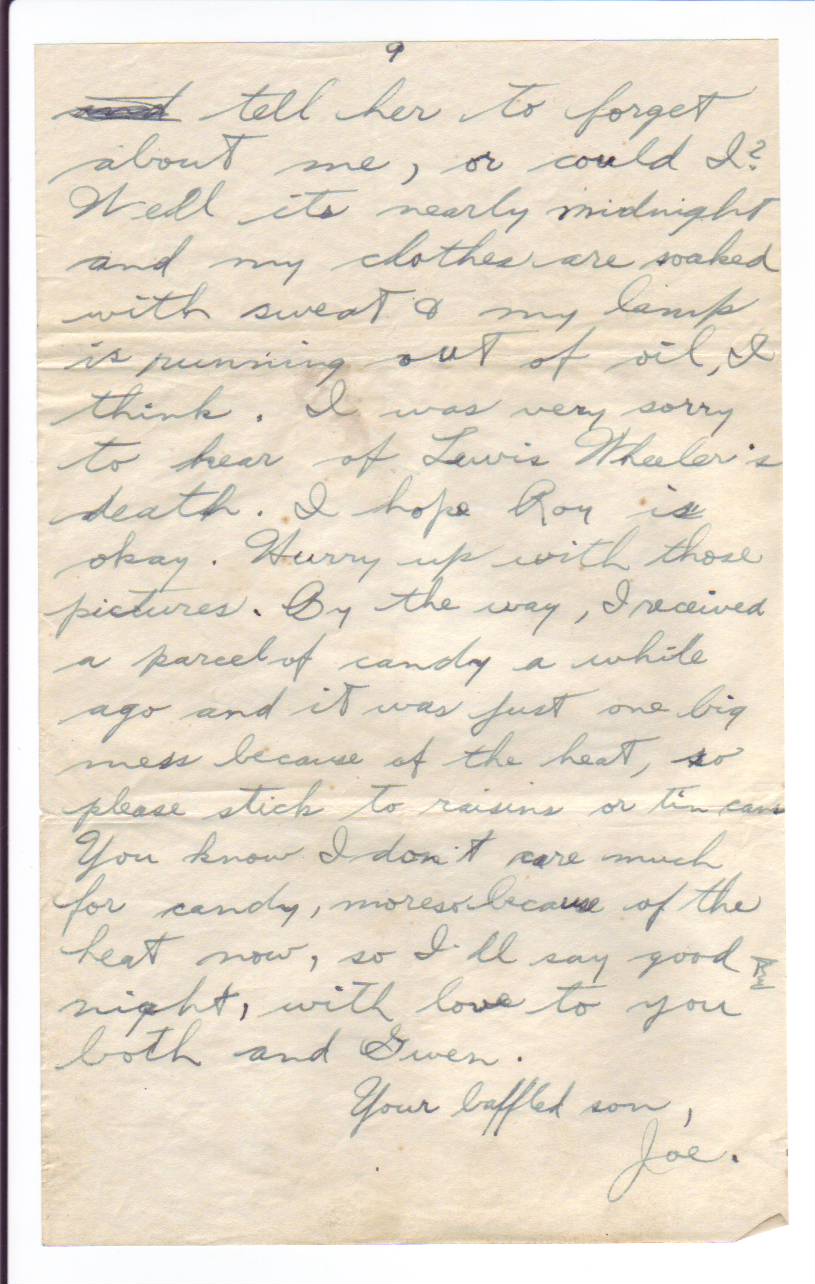 9
tell her to forget
about me, or could I?
Well its nearly midnight
and my clothes are soaked
with sweat & my lamp
is running out of oil, I
think. I was very sorry
to hear of Lewis Wheeler's
death. I hope Roy is
okay. Hurry up with those
pictures. By the way, I received
a parcel of candy a while
ago and it was just one big
mess because of the heat, so
please stick to raisins or tin cans
You know I don't care much
for candy, moreso because of the
heat now, so I'll say good
night, with love to you
both and Gwen.
Your baffled son,
Joe.